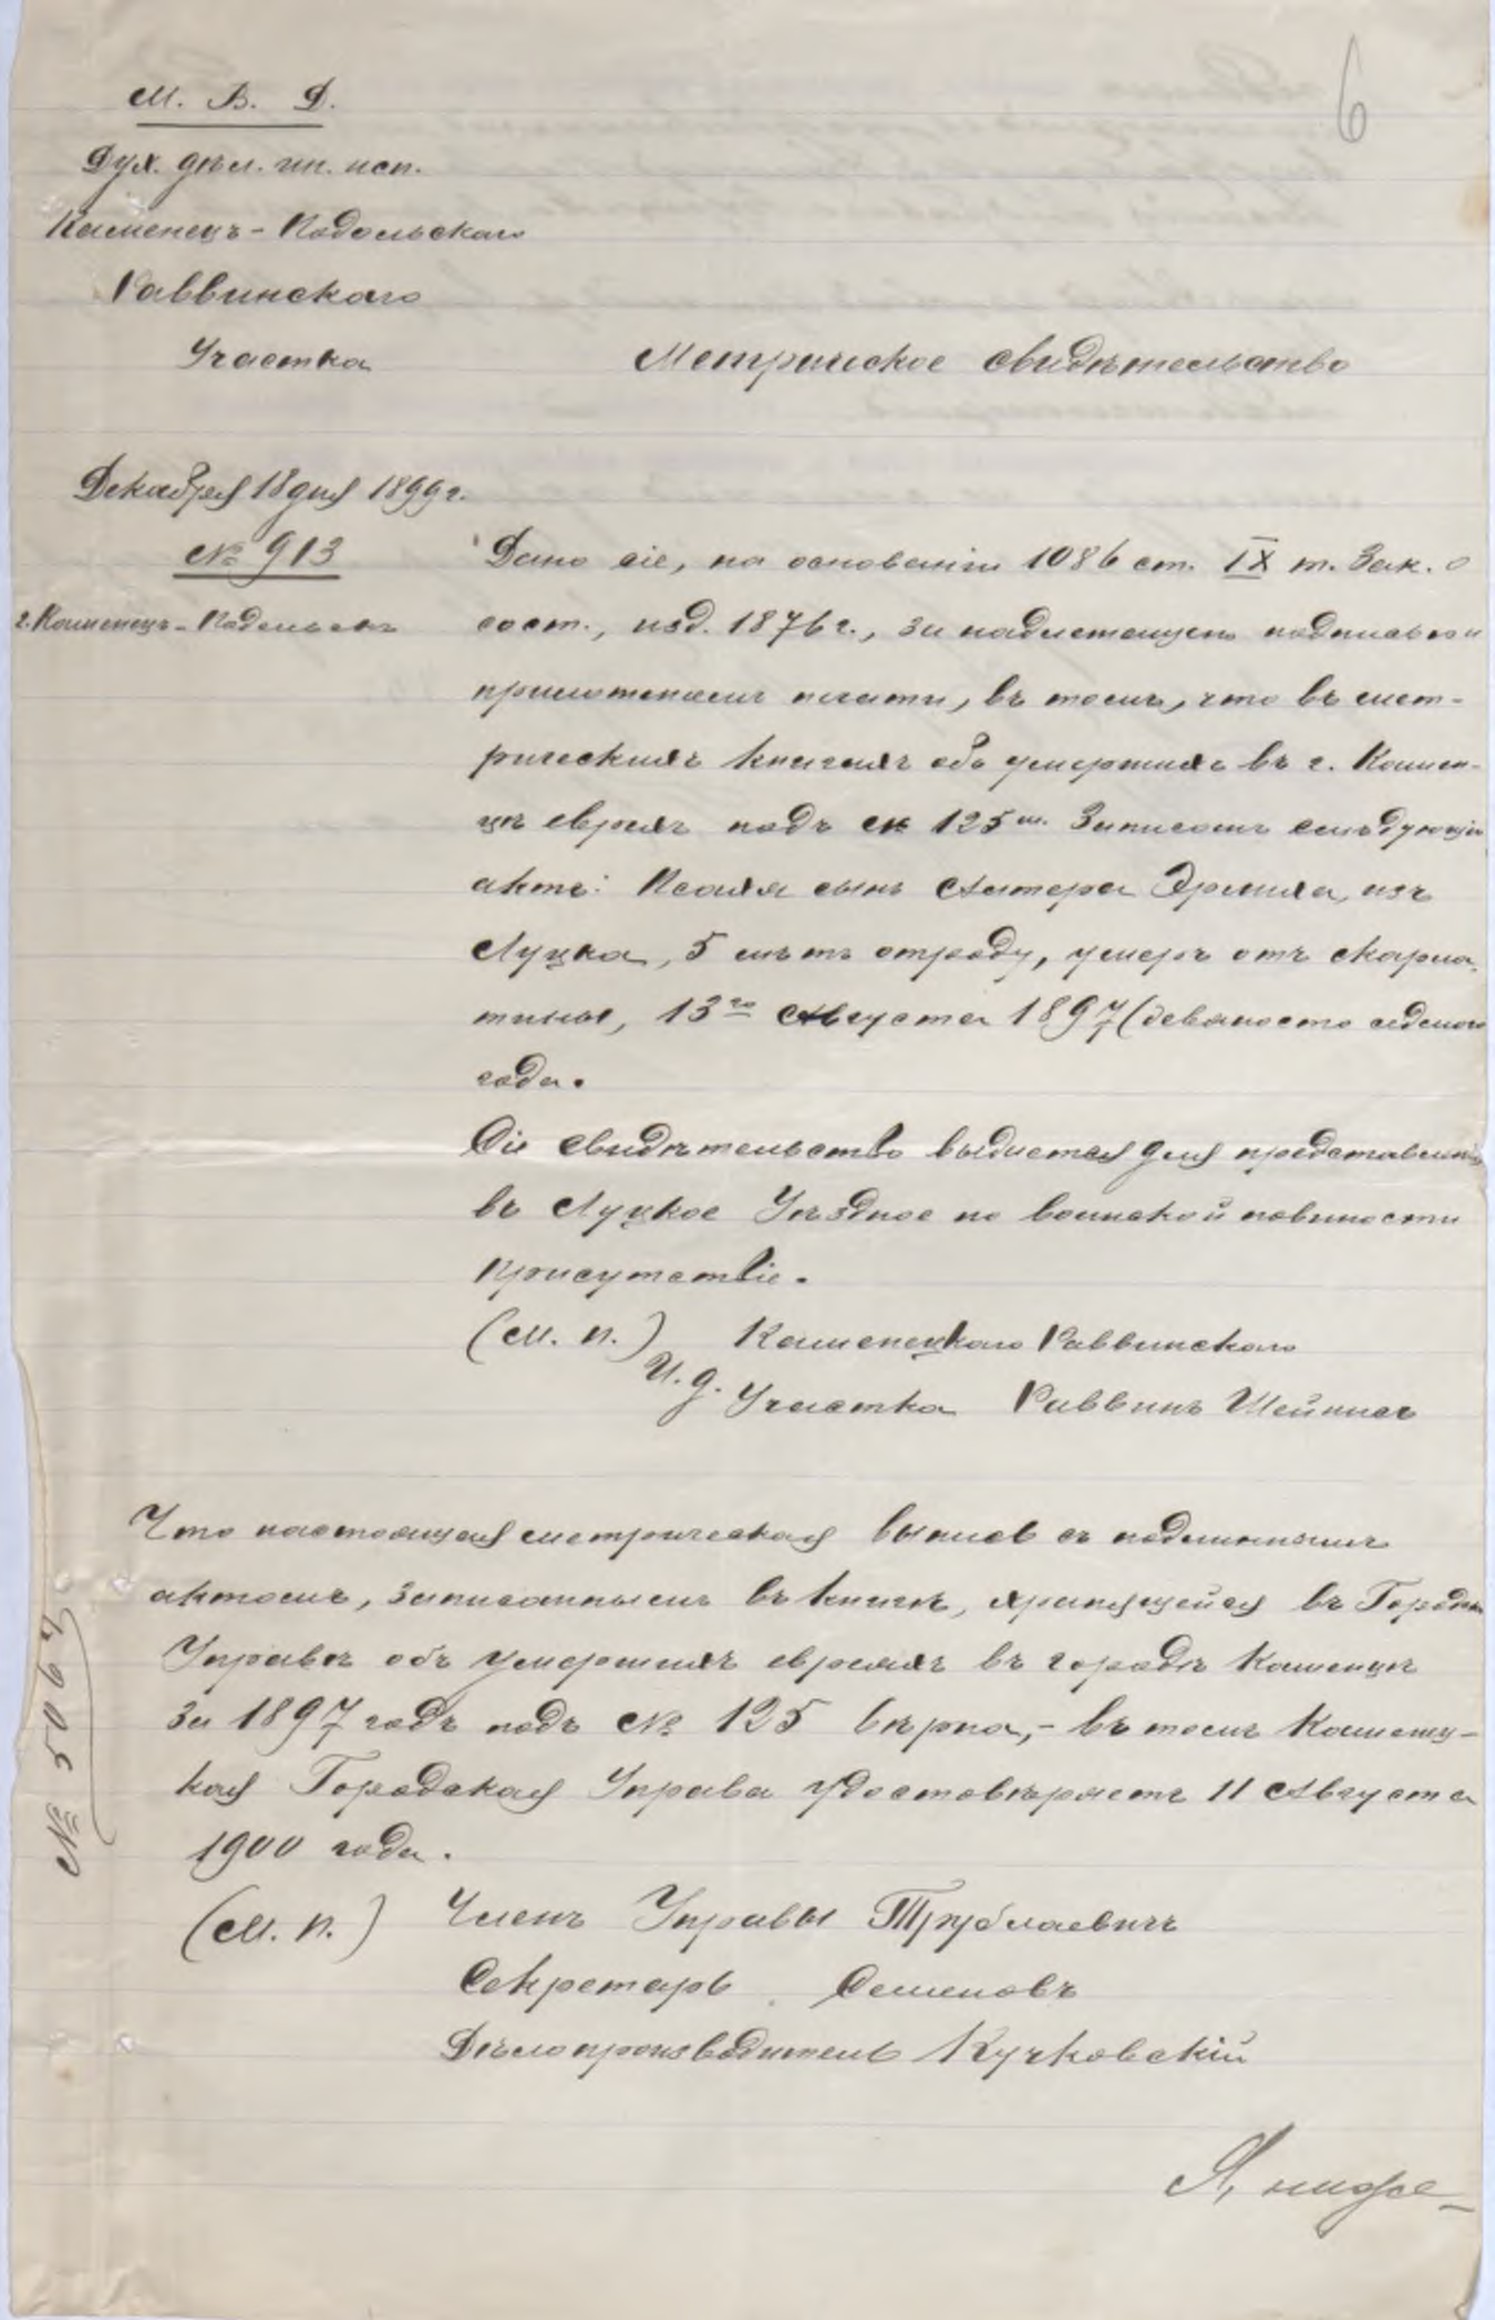 6
М. В. Д.
Дух. дѣл. ин. исп.
Каменецъ-Подольскаго
Раввинскаго
Участка
Метрическое свидѣтельство
Декабря 18 дня 1899 г.
№ 913
г. Каменецъ-Подольскъ
Дано сіе, на основаніи 1086 ст. IX т. Зак. о
сост., изд. 1876 г., за надлежащею подписью и
приложеніемъ печати, въ томъ, что въ мет-
рическихъ книгахъ объ умершихъ въ г. Камен-
цѣ евреяхъ подъ № 125 м. записанъ слѣдующій
актъ: сынъ
Луцка, 5 лѣтъ отроду, умеръ отъ скарла-
тины, 13го Августа 1897 (девяносто седьмого
года.
Сіе свидѣтельство выдается для представленія
въ Луцкое Уѣздное по воинской повиности
Присутствіе.
(М. П.) Каменецкаго Раввинскаго
И. д. Участка Раввинъ
Что настоящая метрическая выпись съ подлиннымъ
актомъ, записаннымъ въ книгѣ, хранящейся въ Городск
Управѣ объ умершихъ евреяхъ въ городѣ Каменцѣ
за 1897 годъ подъ № 125 вѣрна,- въ томъ Каменец-
кая Городская Управа удостовѣряетъ 11 Августа
1900 года.
(М. П.) Членъ Управы Трублаевичъ
Секретарь Семеновъ
Дѣлопроизводитель Кучковскій
№ 5067
Я, ниже-